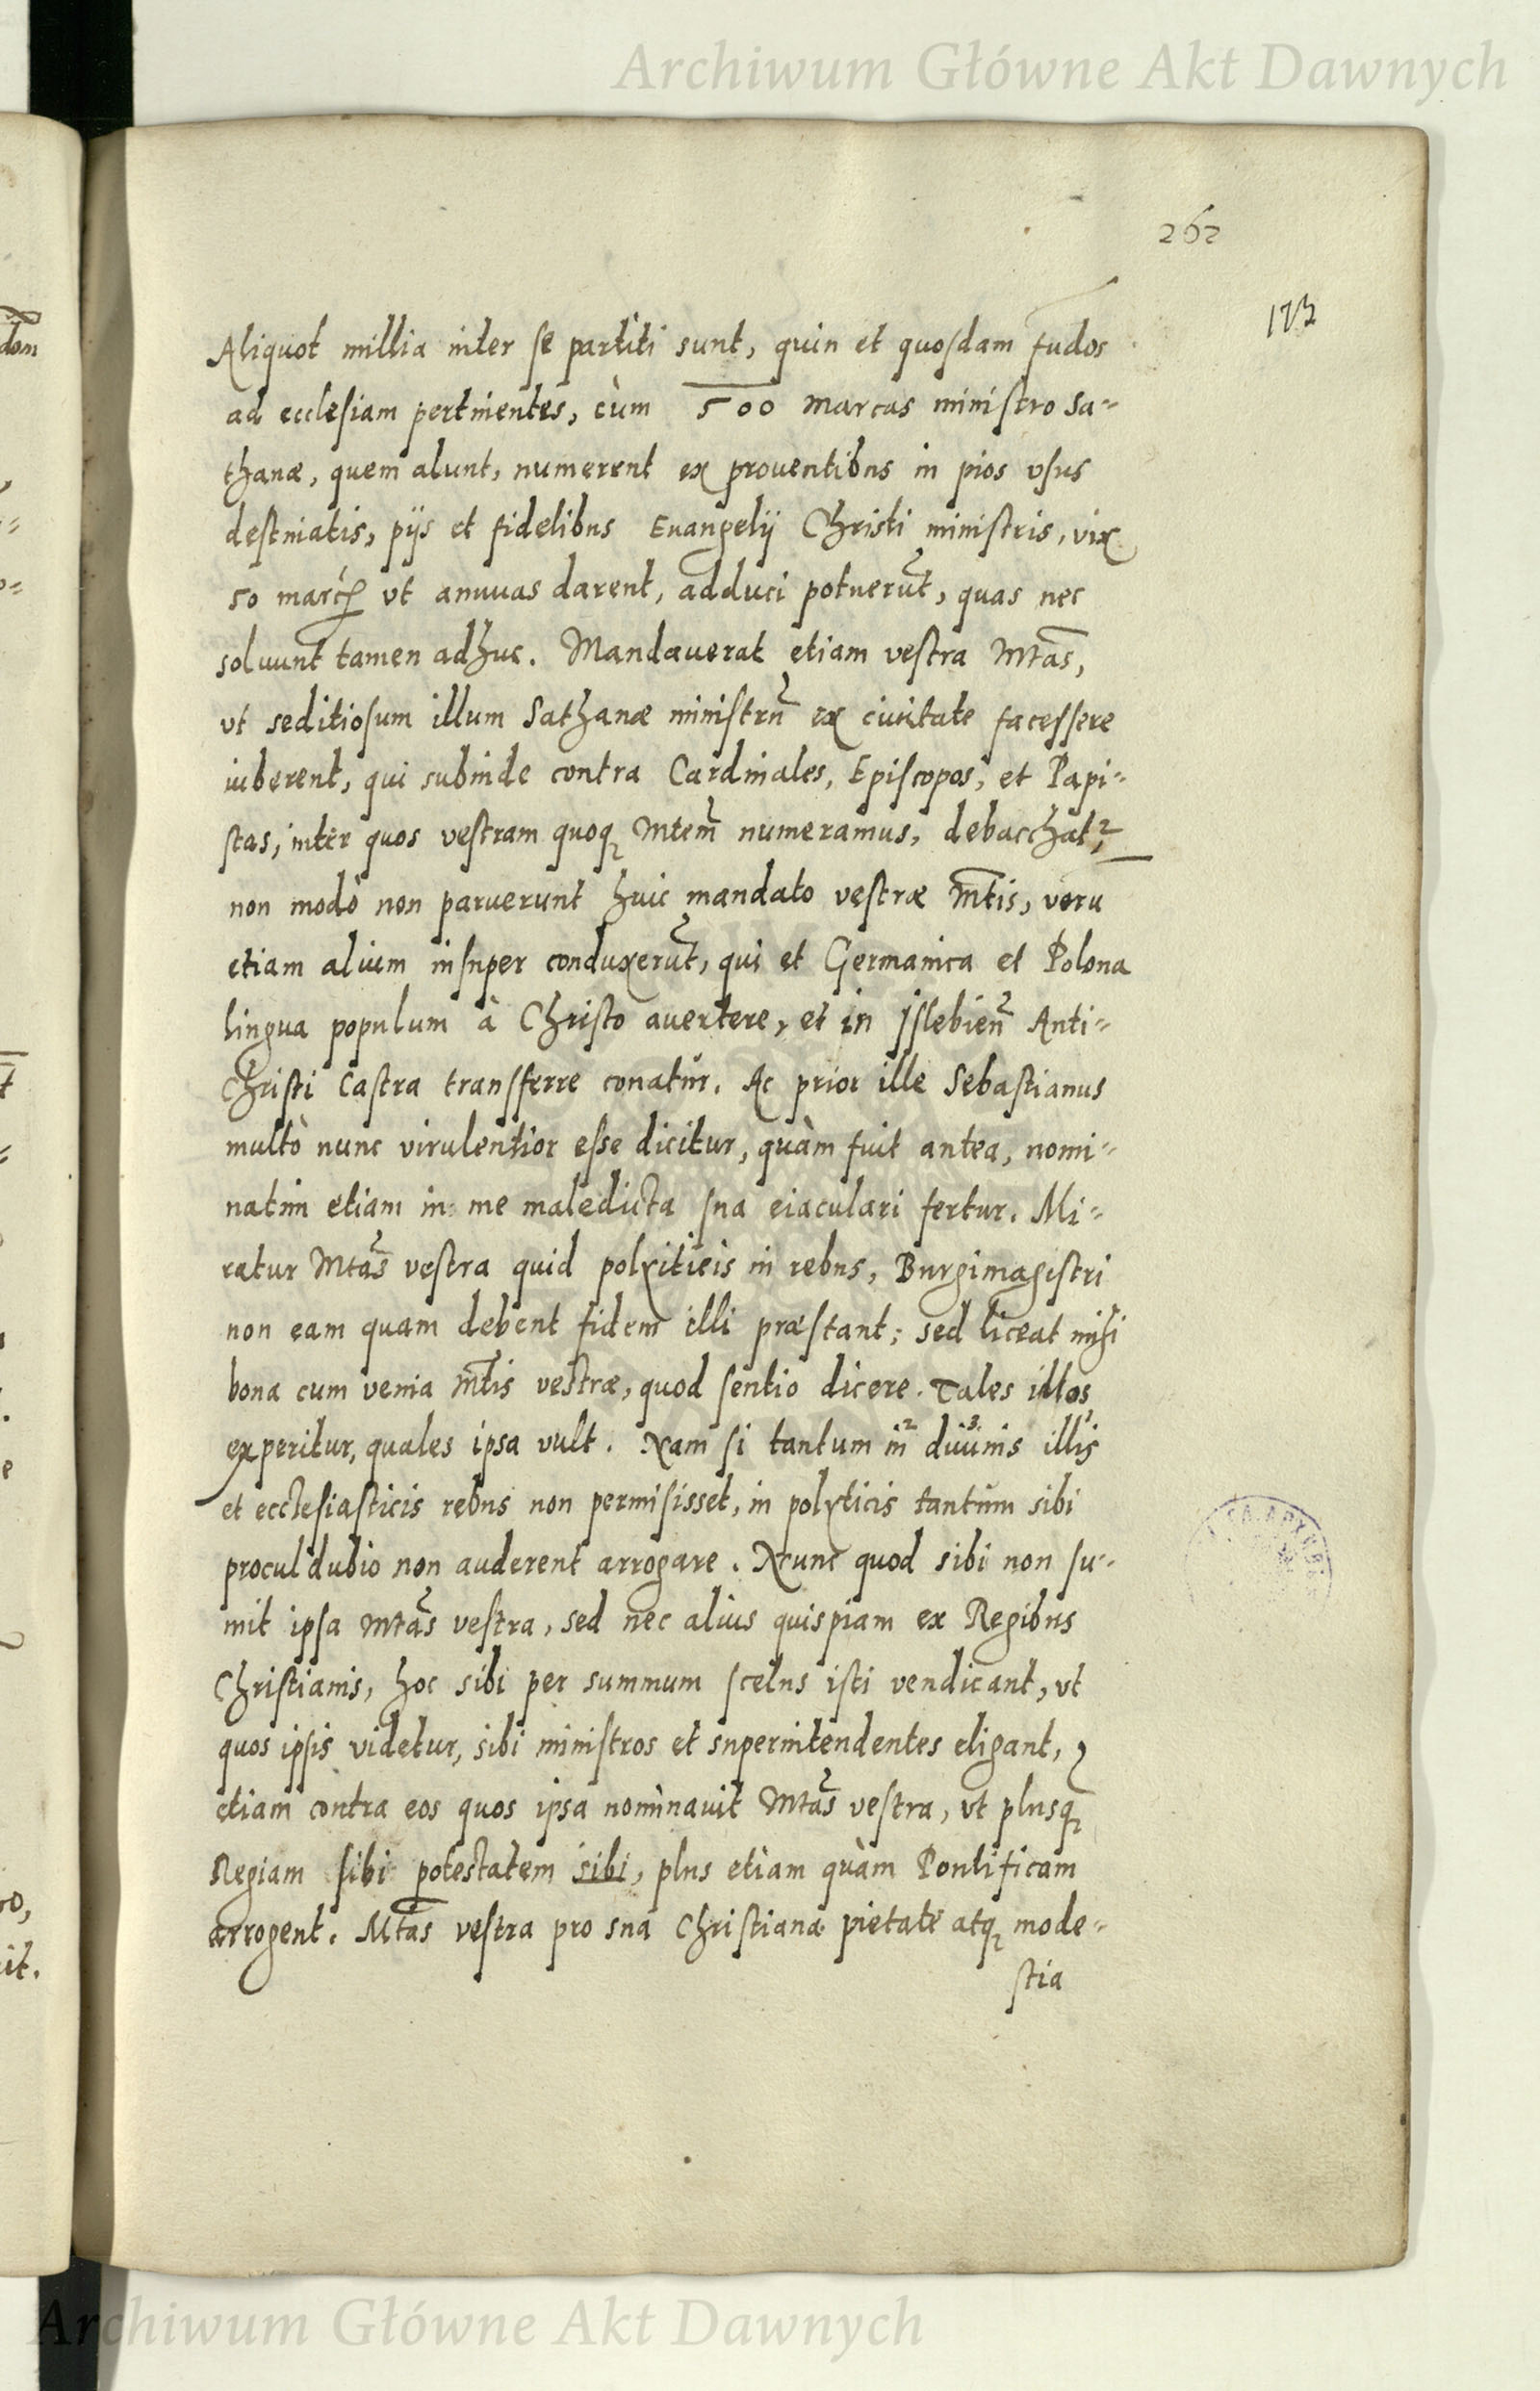 Archiwum Główne Akt Dawnych
262
173
Aliquot millia inter se partiti sunt, quin et quosdam fudos
ad ecclesiam pertinentes, cùm 500 marcas ministro Sa-
thanæ, quem alunt, numerent ex prouentibus in pios vsus
destinatis, pijs et fidelibus Euangelij Christi ministris, vix
50 marcę vt annuas darent, adduci potuerūt, quas nec
soluunt tamen adhuc. Mandauerat etiam vestra Mtas,
vt seditiosum illum Sathanæ ministrū ex ciuitate facessere
iuberent, qui subinde contra Cardinales, Episcopos, et Papi-
stas, inter quos vestram quoq Mtem numeramus, debacchat,
non modò non paruerunt huic mandato vestræ Mtis, veru
etiam alium insuper conduxerūt, qui et Germanica et Polona
lingua populum à Christo auertere, et in Islebien Anti-
christi Castra transferre conatur. Ac prior ille Sebastianus
multò nunc virulentior esse dicitur, quàm fuit antea, nomi-
natim etiam in me maledicta sua eiaculari fertur. Mi-
ratur Mtas vestra quid polyiticis in rebus, Burgimagistri
non eam quam debent fidem illi præstant; sed liceat mihi
bona cum venia Mtis vestræ, quod sentio dicere. Tales illos
experitur, quales ipsa vult. Nam si tantum in 2 diuinis 3 illis 1
et ecclesiasticis rebus non permisisset, in polyticis tantum sibi
proculdubio non auderent arrogare. Nunc quod sibi non su-
mit ipsa Mtas vestra, sed nec alius quispiam ex Regibus
Christianis, hoc sibi per summum scelus isti vendicant, vt
quos ipsis videtur, sibi ministros et superintendentes eligant,
etiam contra eos quos ipsa nominauit Mtas vestra, vt plusq
Regiam sibi potestatem sibi, plus etiam quàm Pontificam
arrogent. Mtas vestra pro sua Christiana pietate atq mode-
stia
Archiwum Główne Akt Dawnych